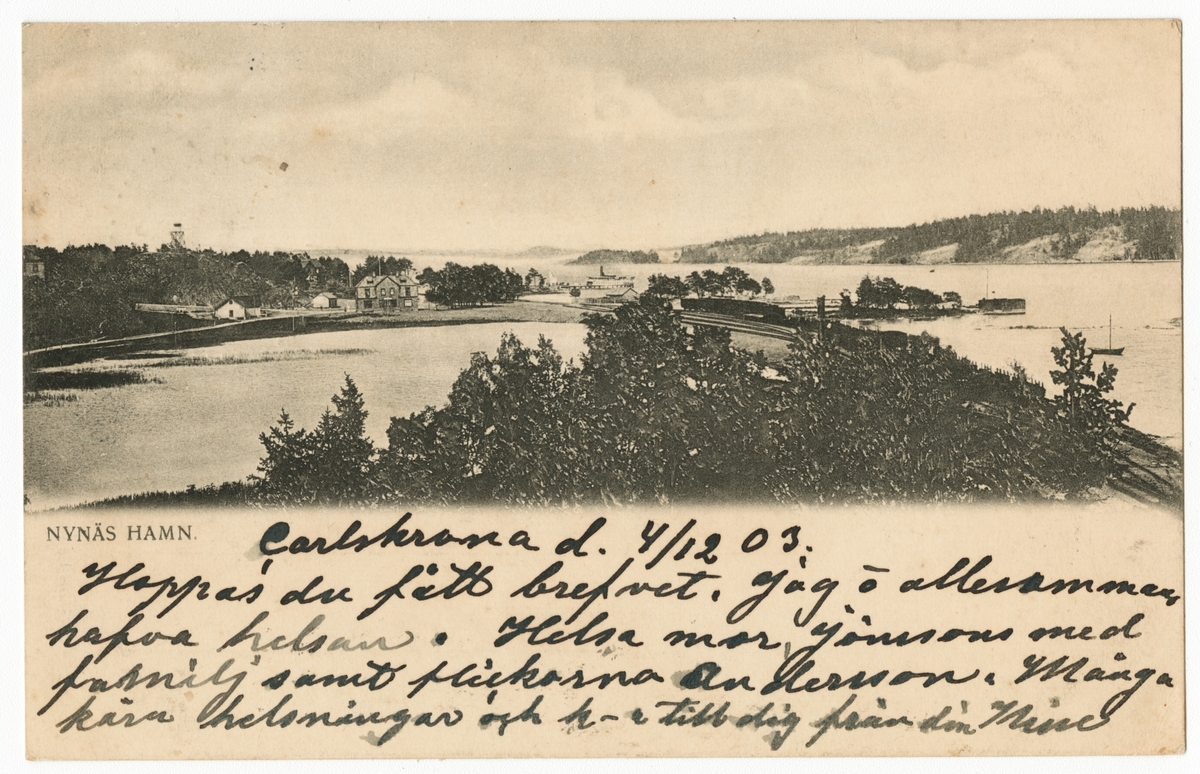 NYNÄS HAMN.
Carlskrona d. 4/12 03.
Hoppas du fått brefvet. Jag o allesamman
hafva helsan. Helsa mor, Jönssons med
familj samt flickorna Andersson. Många
kära helsningar och k-r till dig från din